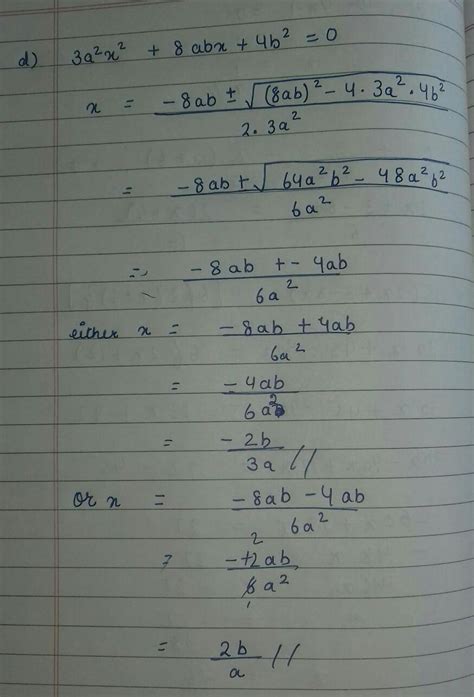 d) 3a²x² + 8abx + 4b² = 0
x = (-8ab ± √((8ab)² - 4 · 3a² · 4b²)) / (2 · 3a²)
= (-8ab ± √(64a²b² - 48a²b²)) / 6a²
= (-8ab +- 4ab) / 6a²
either x = (-8ab + 4ab) / 6a²
= -4ab / 6a²
= -2b / 3a //
or x = (-8ab - 4ab) / 6a²
= -12ab / 6a² 2
= 2b / a //